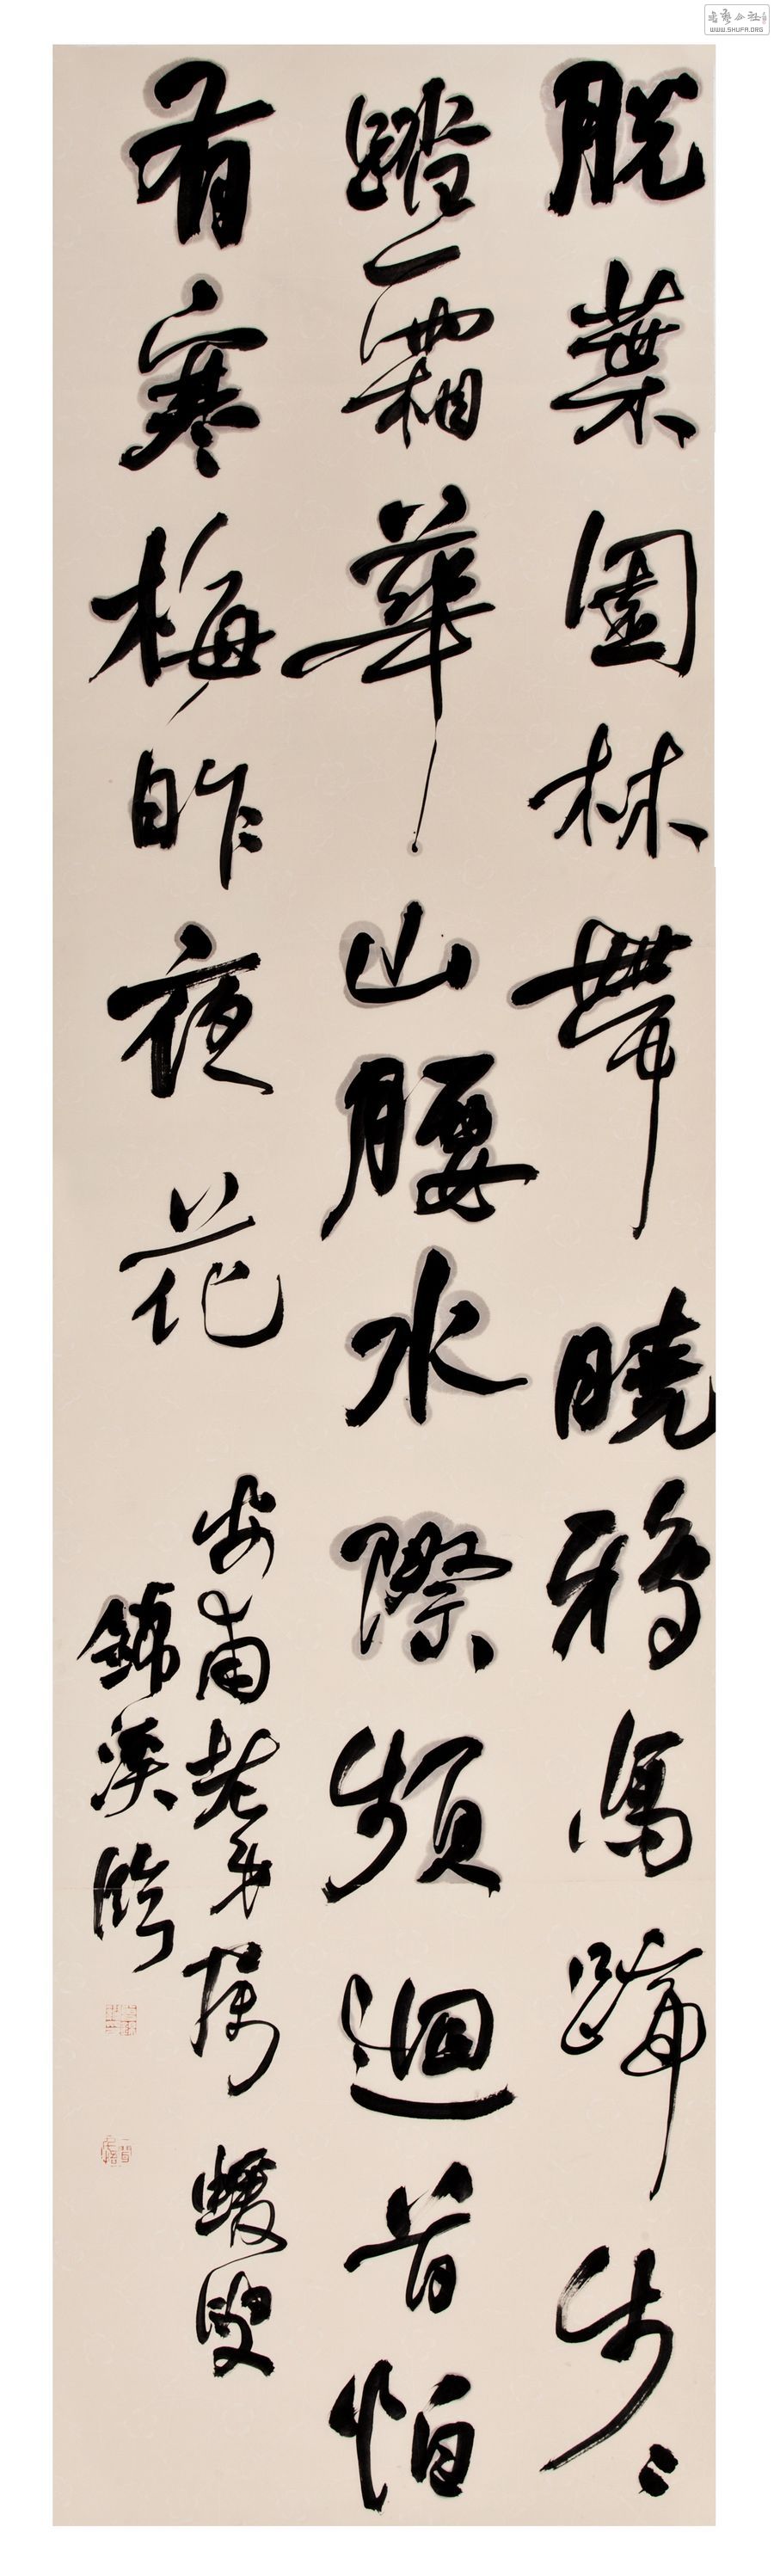 脫葉園林帶曉鴉馬蹄步步
踏一霜華山腰水際頻迴首怕
有寒梅昨夜花
安甫老弟屬 暖叟
錦溪臨
WWW.SHUFA.ORG